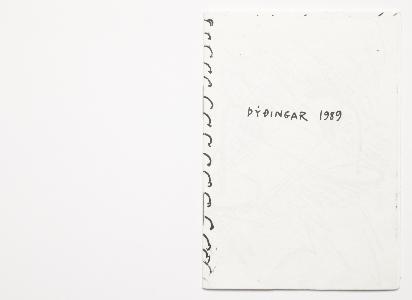 ÞÝÐINGAR 1989